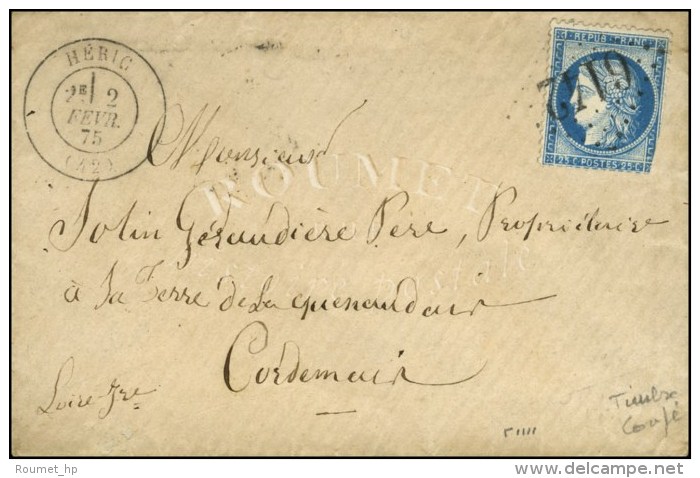 HÉRIC
2E 2
FÉVR.
75
(42)
REPUB. FRANC.
25 C POSTES 25 C
Monsieur
ROUMET
Jolin Géraudière Père, Propriétaire
à la Terre de la quenaudais
Cordemais
Loire Jre
Timbre
Coupé
Roumet_hp
delcampe.net